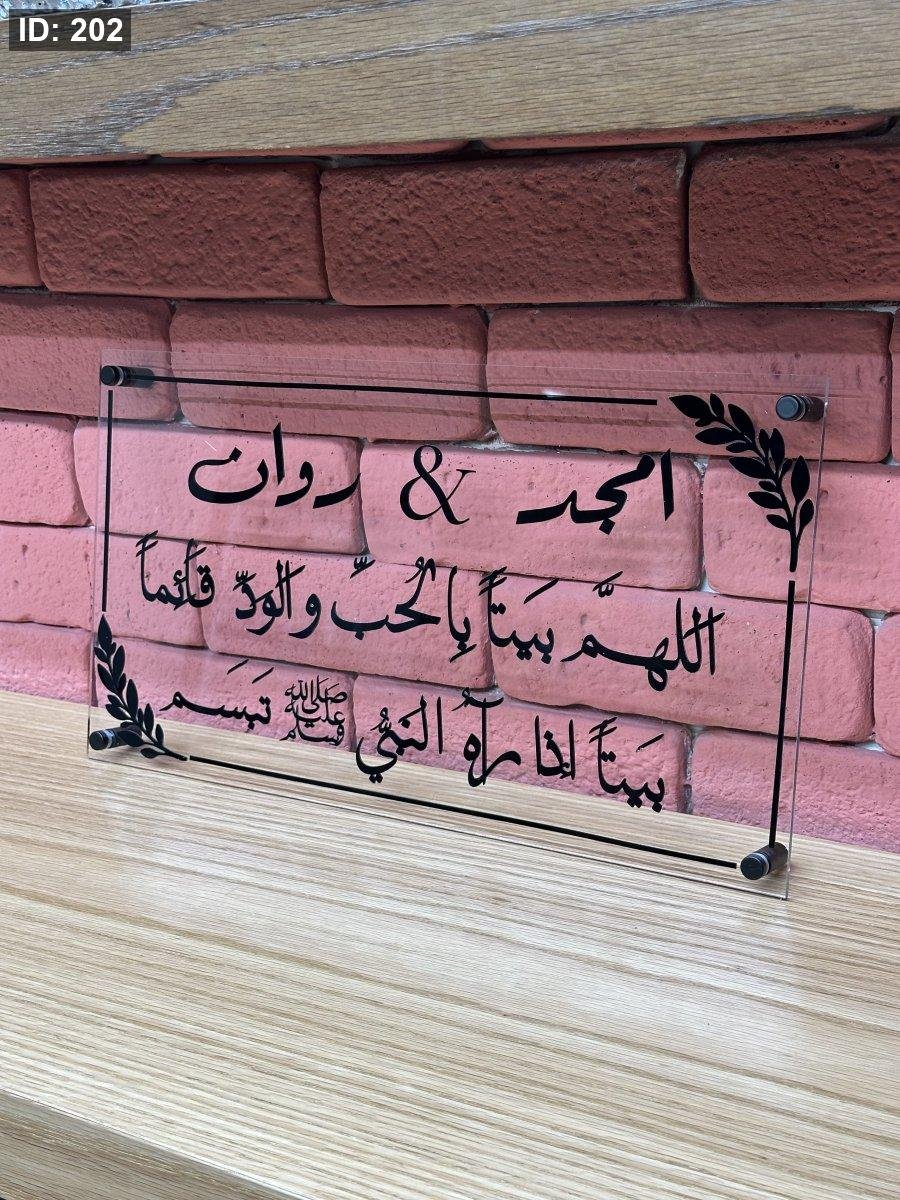 ID: 202
امجد & روان
اللهمَّ بَيتاً بِالحُبِّ والودِّ قائماً
بَيتاً إذا رآهُ النَبيُّ ﷺ تَبَسَم